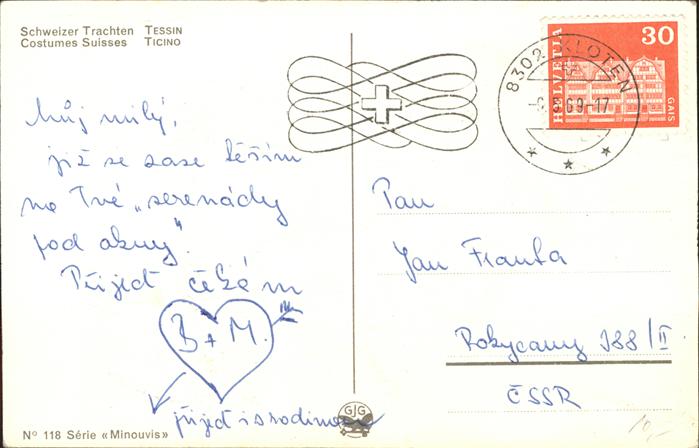 Schweizer Trachten TESSIN
Costumes Suisses TICINO
Můj milý,
již se zase těším
na Tvé „serenády
pod okny".
Přijeď čeká m
B + M.
přijeď i s rodinou
Nº 118 Série «Minouvis»
GJG
8302 KLOTEN
69-17
HELVETIA
30
GAIS
Pan
Jan Franta
Rokycany 188/II
ČSSR
10,-